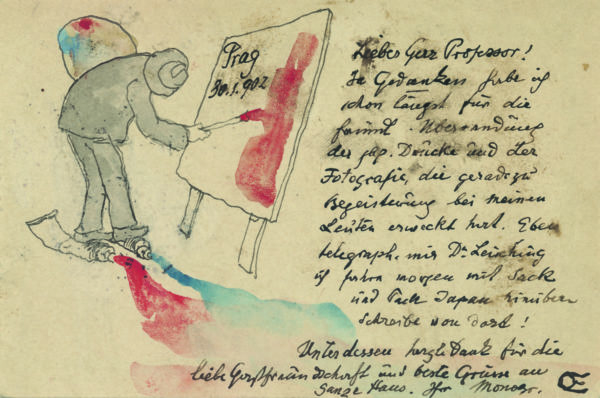 Prag
30.1.902
Liebes Herr Professor!
In Gedanken habe ich
schon längst für die
freundl. Übersendung
der jap. Drucke und der
Fotografie, die geradezu
Begeisterung bei meinen
Leuten erweckt hat. Eben
telegraph. mir Dr Leisching
ich fahre morgen mit Sack
und Pack Japan hinüber
schreibe von dort!
Unterdessen herzl Dank für die
liebe Gastfreundschaft und beste Grüsse an
Ganze Haus. Ihr